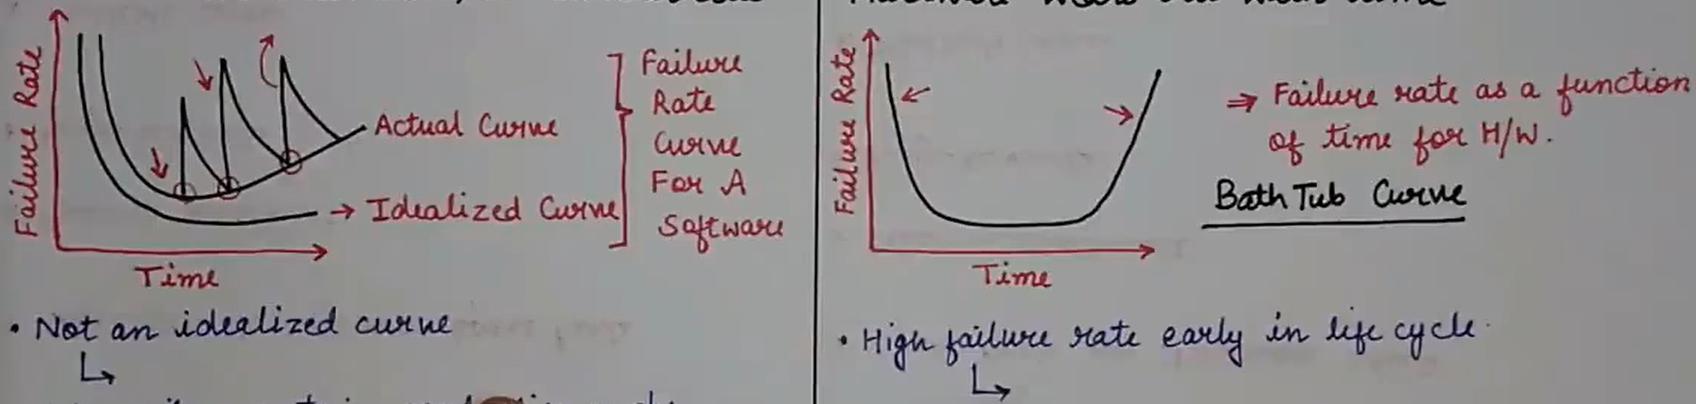 Failure Rate
Actual Curve
→ Idealized Curve
Time
Failure
Rate
Curve
For A
Software
• Not an idealized curve
Failure Rate
Time
⇒ Failure rate as a function
of time for H/W.
Bath Tub Curve
• High failure rate early in life cycle.